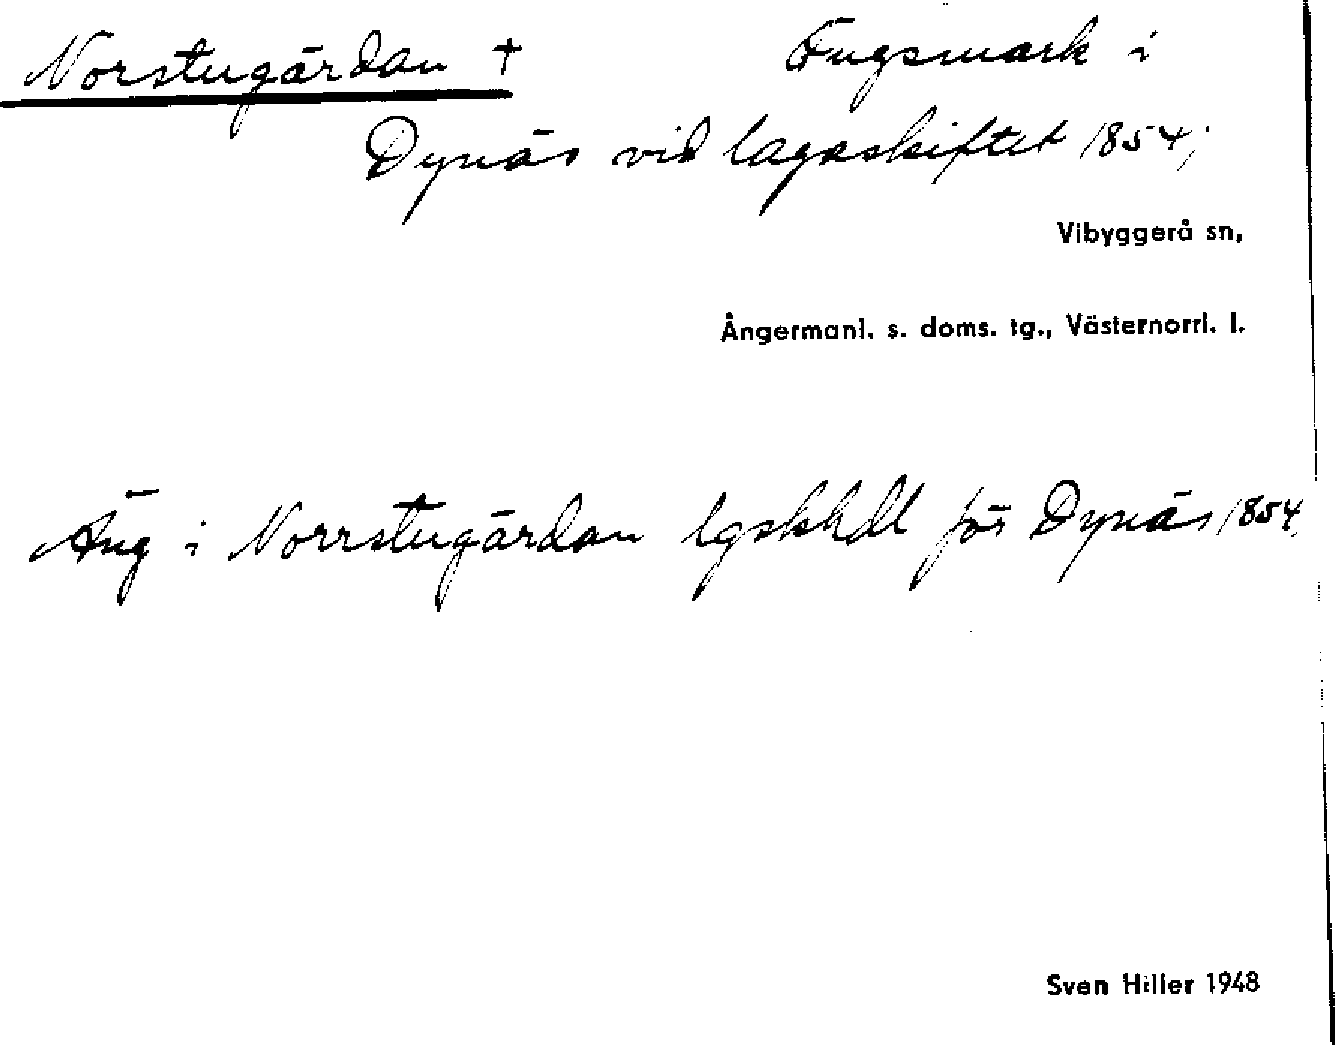 Norstugärdan † Ängsmark i
Dynäs vid lagaskiftet 1854;
Vibyggerå sn,
Ångermanl. s. doms. tg., Västernorrl. l.
Äng i Norrstugärdan lgskhdl för Dynäs 1854.
Sven Hiller 1948